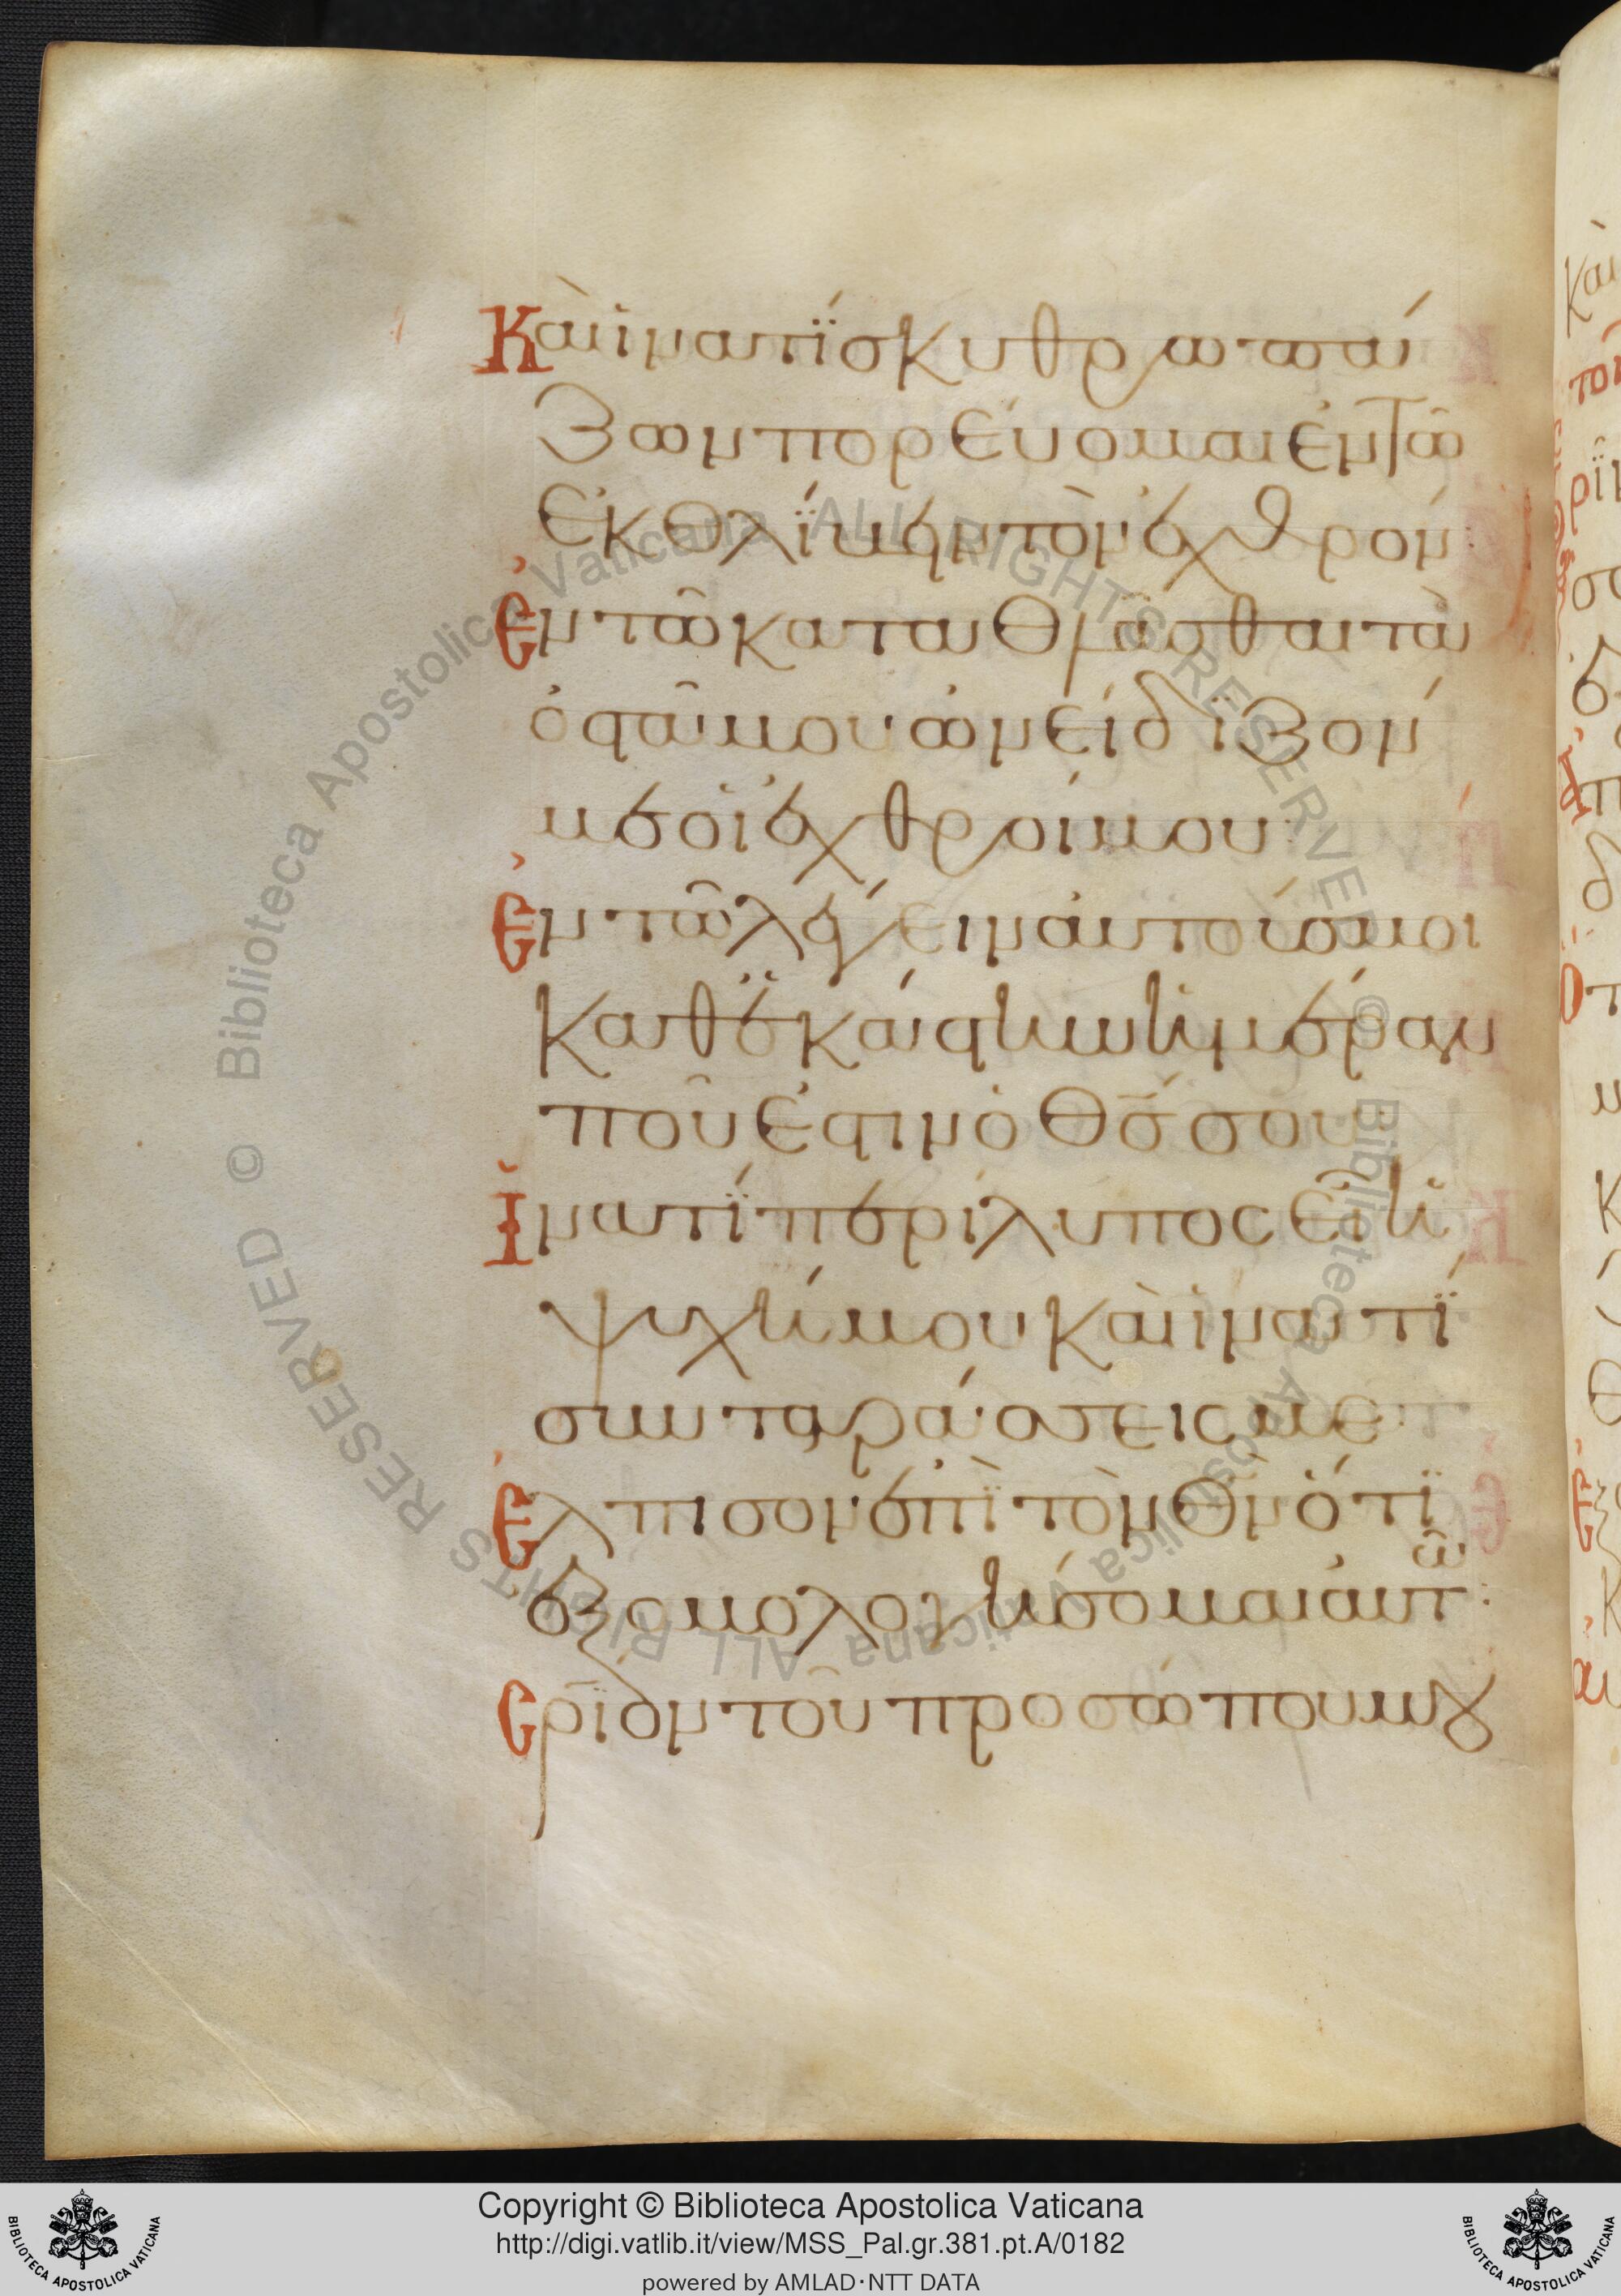 Καὶ ἱνατί σκυθρωπά
ζων πορεύομαι ἐν τῶ
ἐκθλίβειν τὸν ἐχθρόν:
Ἐν τῶ καταθλᾶσθαι τὰ
ὀστᾶ μου ὠνείδιζόν
με οἱ ἐχθροί μου:
Ἐν τῶ λέγειν αὐτούς μοι
καθ' ἑκάστην ἡμέραν
ποῦ ἐστιν ὁ θς σου:
Ἱνατί περίλυπος εἶ ἡ
ψυχή μου καὶ ἱνατί
συνταράσσεις με
Ἔλπισον ἐπὶ τὸν θν ὅτι
ἐξομολογήσομαι αὐτῶ:
σριον τοῦ προσώπου μου
Copyright © Biblioteca Apostolica Vaticana
http://digi.vatlib.it/view/MSS_Pal.gr.381.pt.A/0182
powered by AMLAD·NTT DATA
BIBLIOTECA APOSTOLICA VATICANA
BIBLIOTECA APOSTOLICA VATICANA
© Biblioteca Apostolica Vaticana ALL RIGHTS RESERVED
© Biblioteca Apostolica Vaticana ALL RIGHTS RESERVED